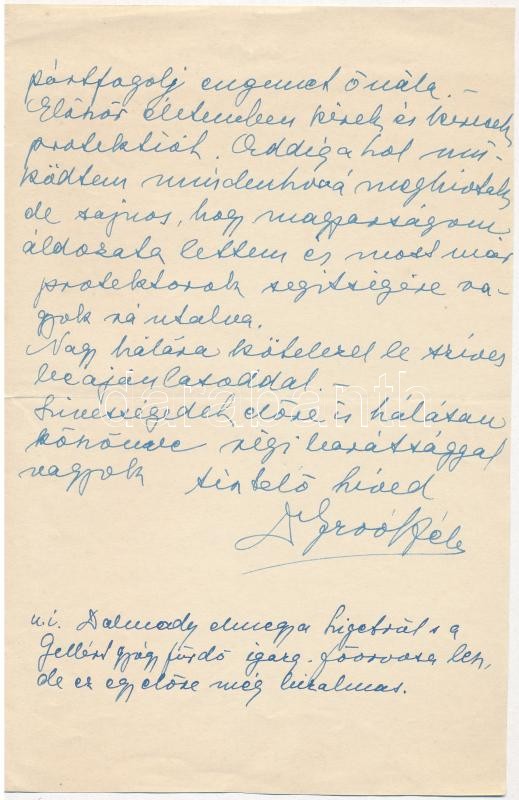 pártfogolj engemet őnála. –
Először életemben kérek és keresek
protektiót. Addig ahol mű-
ködtem mindenhová meghivtak
de sajnos, hogy magyarságom
áldozata lettem és most már
protektorok segitségére va-
gyok rá utalva.
Nagy hálára kötelezel le szives
beajánlásoddal. –
Szivességedet előre is hálásan
köszönve régi barátsággal
vagyok tisztelő hived
Dr Béla
u.i. Dalmady elmegy a Ligetből s a
Gellért gyógyfürdő igazg. főorvosa lesz,
de ez egyelőre még bizalmas.
darabanth